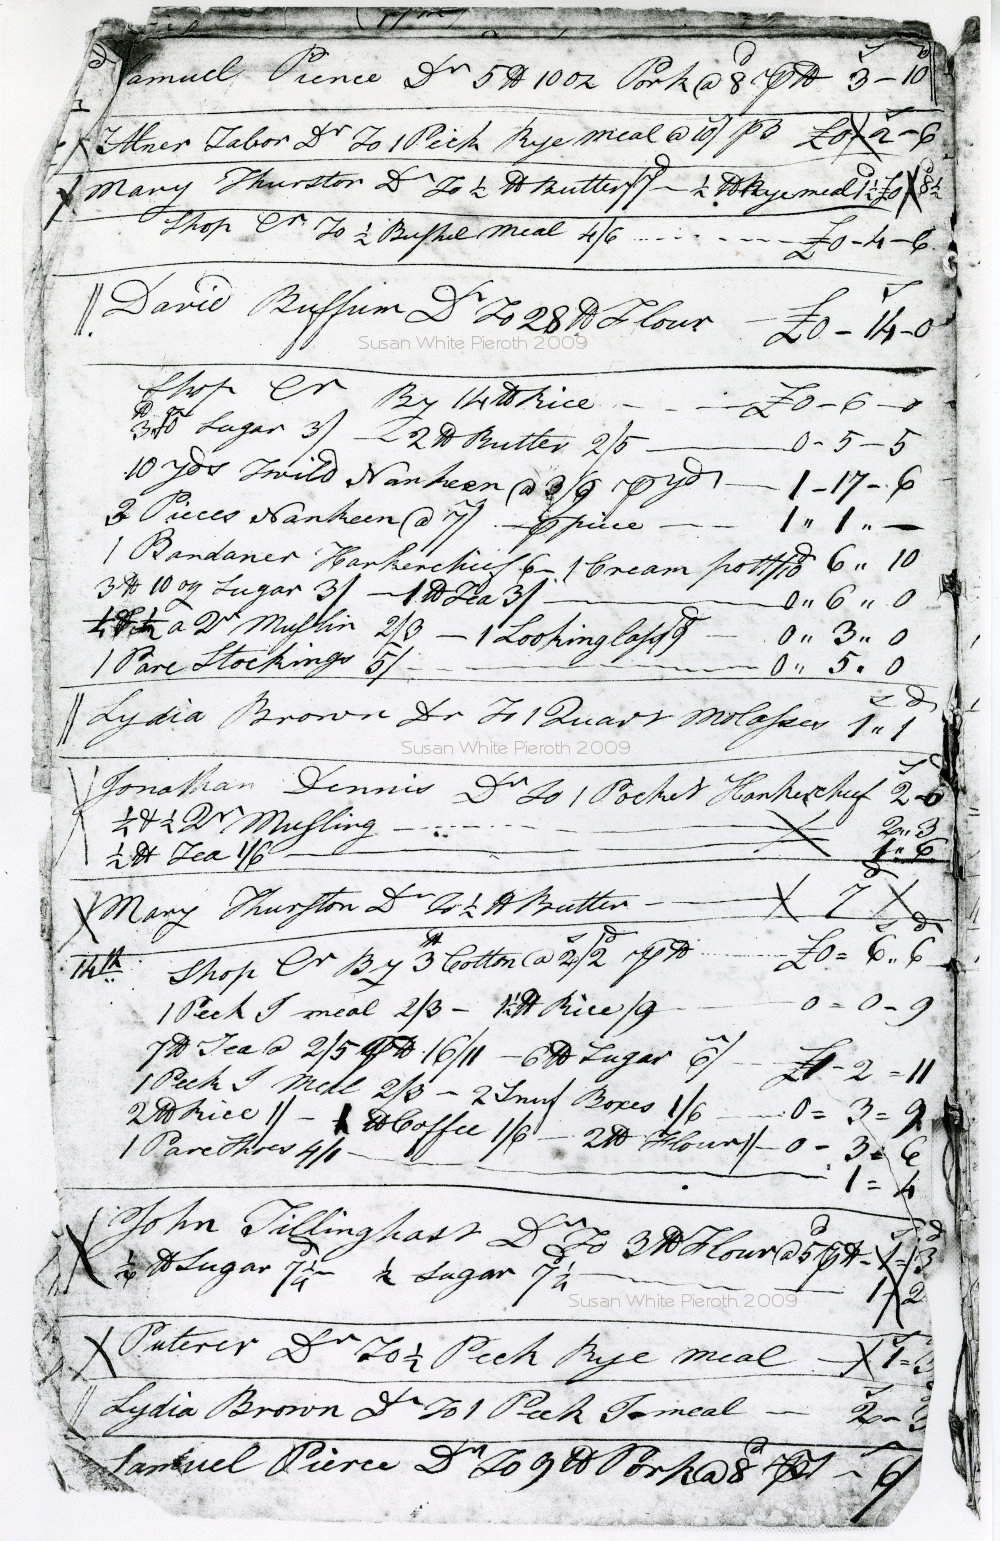 Samuel Pierce Dr 5 lb 10 oz Pork @ 8d p lb 3 - 10
Abner Tabor Dr To 1 Peck Rye meal @ 10/ £0 - 2 - 6
Mary Thurston Dr To ½ lb Butter /7d - ½ lb Rye meal 1½ £0 8½
Shop Cr To ½ Bushel meal 4/6 £0 - 4 - 6
David Buffum Dr To 28 lb Flour £0 - 14 - 0
Susan White Pieroth 2009
Shop Cr By 14 lb Rice £0 - 6 - 0
Sugar 3/ 2 lb Butter 2/5 0 - 5 - 5
10 yds Twild Nankeen @ 3/9 p yd 1 - 17 - 6
3 Pieces Nankeen @ 7/ piece 1 " 1 " -
1 Bandaner Hankerchief 6 - 1 Cream pott /10d 6 " 10
3 lb 10 oz Sugar 3/ - 1 lb Tea 3/ 0 " 6 " 0
a Dr Muslin 2/3 - 1 Looking lass 9d 0 " 3 " 0
1 Pare Stockings 5/ 0 " 5 " 0
Lydia Brown Dr To 1 Quart Molasses 1 " 1
Susan White Pieroth 2009
Jonathan Dennis Dr To 1 Pocket Hankerchief 2 - 6
½ & ½ Dr Musling 2 " 3
½ lb Tea 1/6 1 " 6
Mary Thurston Dr To ½ lb Butter 7
14th Shop Cr By 3 lb Cotton @ 2/2 p lb £0 = 6 " 6
1 Peck I meal 2/3 - 1½ lb Rice /9 0 = 0 - 9
7 lb Tea @ 2/5 p lb 16/11 - 6 lb Sugar 6/ £1 - 2 = 11
1 Peck I Meal 2/3 - 2 Snuf Boxes 1/6 0 = 3 = 9
2 lb Rice 1/ - 1 lb Coffee 1/6 2 lb Flour 1/ 0 - 3 = 6
1 Pare Shoes 4/ 1 = 4
John Tillinghast Dr To 3 lb Flour @ 5d p lb 1 = 3
½ lb Sugar 7¼ ½ Sugar 7¼ 1 / 2
Susan White Pieroth 2009
Puterer Dr To ½ Peck Rye meal 1 = 3
Lydia Brown Dr To 1 Peck I meal 2 - 3
Samuel Pierce Dr To 9 lb Pork @ 8d 6/